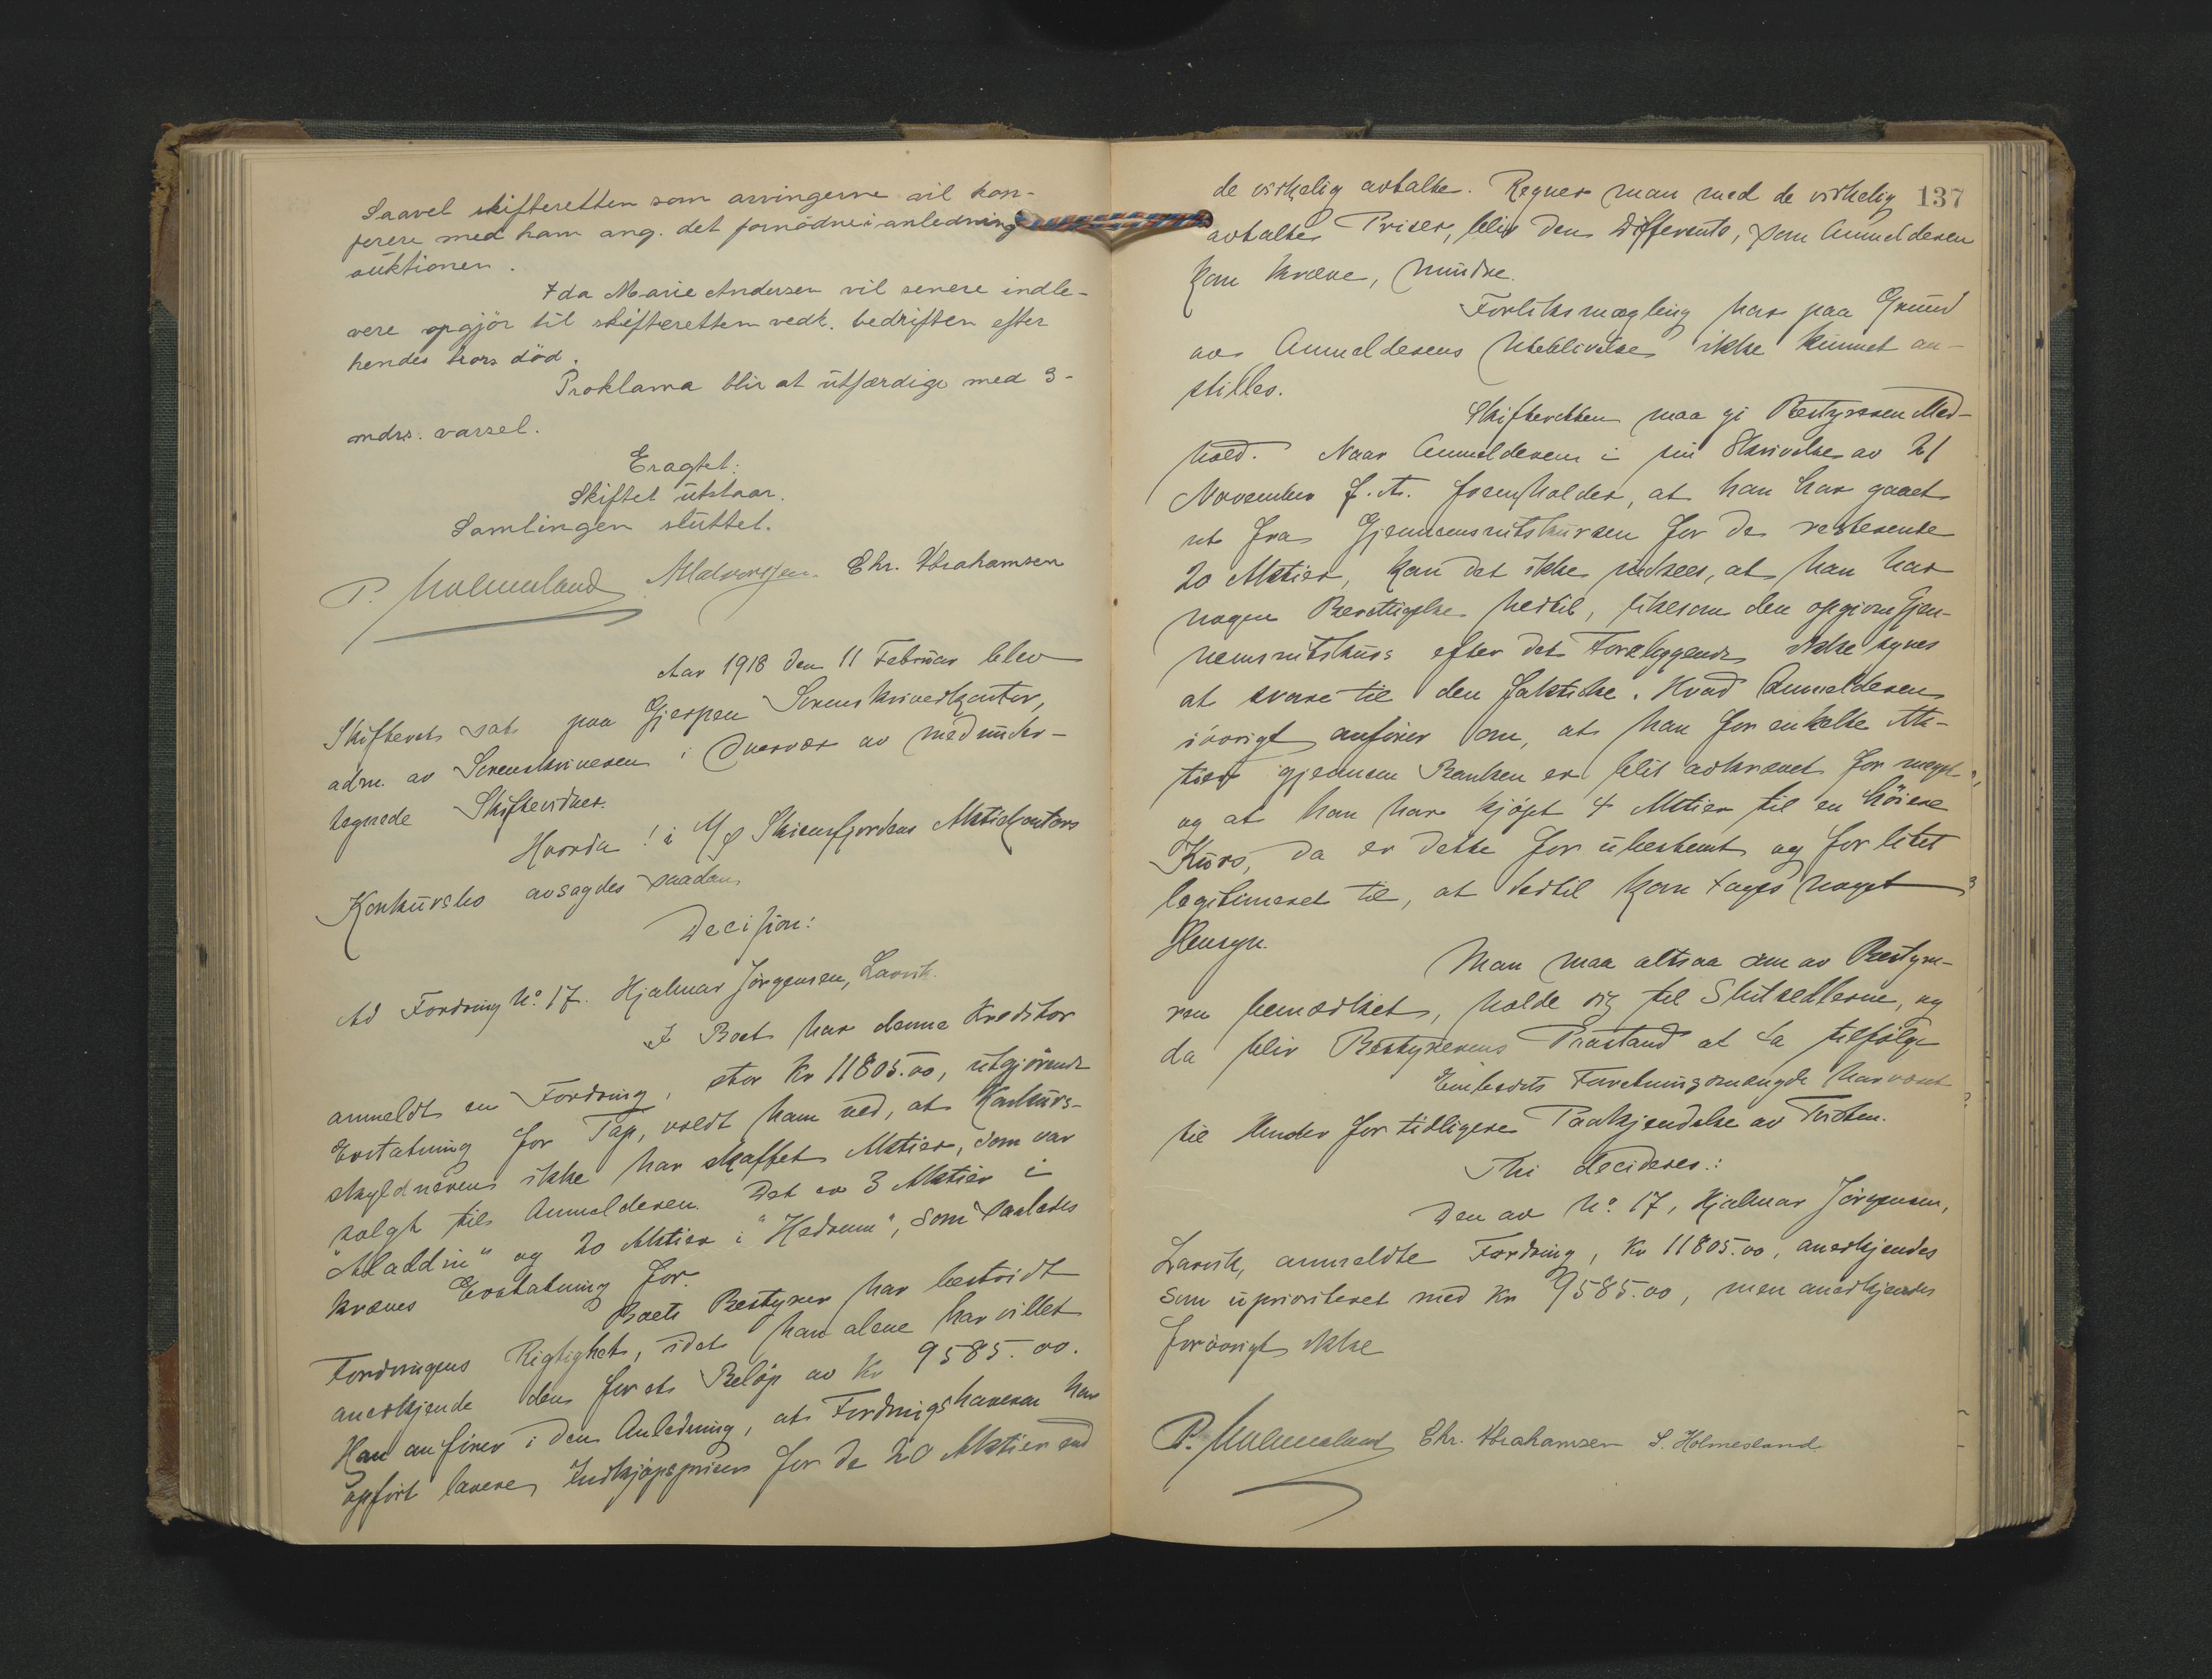 Saavel skifteretten som arvingerne vil kon-
ferere med ham ang. det fornødne i anledning
auktionen.
Ida Marie Andersen vil senere indle-
vere opgjør til skifteretten vedk. bedriften efter
hendes brors død.
Proklama blir at utfærdige med 3-
mdrs. varsel.
Eragtet:
Skiftet utstaar.
Samlingen sluttet.
P. Holmesland Halvorsen Chr. Abrahamsen
Aar 1918 den 11 Februar blev
Skifteret sat paa Gjerpen Sorenskriverkontor,
adm. av Sorenskriveren i Overvær av medunder-
tegnede Skiftevidner.
Hvorda! i A/S Skiensfjordens Aktiekontors
Konkursbo avsagdes saadan
Decision:
Ad Fordring No. 17. Hjalmar Jørgensen, Larvik.
I Boet har denne Kreditor
anmeldt en Fordring, stor Kr 11805.00, utgjørende
Erstatning for Tap, voldt ham ved, at Konkurs-
skyldneren ikke har skaffet Aktier, som var
solgt til Anmelderen. Det er 3 Aktier i
"Aladdin" og 20 Aktier i "Hedrum", som saaledes
kræves Erstatning for.
Boets Bestyrer har bestridt
Fordringens Rigtighet, idet han alene har villet
anerkjende den for et Beløp av Kr 9585.00.
Han anfører i den Anledning, at Fordringshaveren har
opført lavere Indkjøpspriser for de 20 Aktier end
137
de virkelig avtalte. Regner man med de virkelig
avtalte Priser, blir den Differents, som Anmelderen
kan kræve, mindre.
Forliksmægling har paa Grund
av Anmelderens Uteblivelse ikke kunnet an-
stilles.
Skifteretten maa gi Bestyreren Med-
hold. Naar Anmelderen i sin Skrivelse av 21
November f. A. fremholder, at han har gaaet
ut fra Gjennemsnitskursen for de resterende
20 Aktier, kan det ikke indsees, at han har
nogen Berettigelse hertil, likesom den opgivne Gjen-
nemsnitskurs efter det Foreliggende ikke synes
at svare til den faktiske. Hvad Anmelderen
iøvrigt anfører om, at han for enkelte Ak-
tier gjennem Banken er blit avkrævet for meget,
og at han har kjøpt 4 Aktier til en høiere
Kurs, da er dette for ubestemt og for litet
legitimeret til, at dertil kan tages noget
Hensyn.
Man maa altsaa som av Bestyre-
ren bemerket, holde sig til Slutsedlerne, og
da blir Bestyrerens Paastand at ta tilfølge
Embedets Forretningsmængde har været
til Hinder for tidligere Paakjendelse av Tvisten.
Thi decideres:
Den av No. 17, Hjalmar Jørgensen,
Larvik, anmeldte Fordring, Kr 11805.00, anerkjendes
som uprioriteret med Kr 9585.00, men anerkjendes
forøvrigt ikke
P. Holmesland Chr. Abrahamsen S. Holmesland